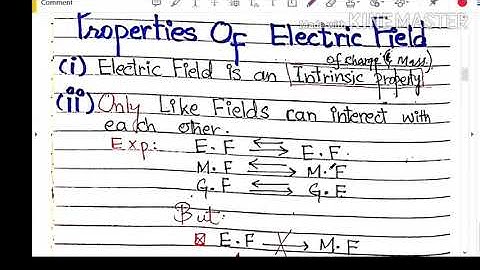 Comment
Properties Of Electric Field
Made with KINEMASTER
of charge & Mass.
(i) Electric Field is an Intrinsic property
(ii) Only Like Fields can interect with
each other.
Exp: E.F E.F.
M.F M.F
G.F G.F
But
E.F M.F